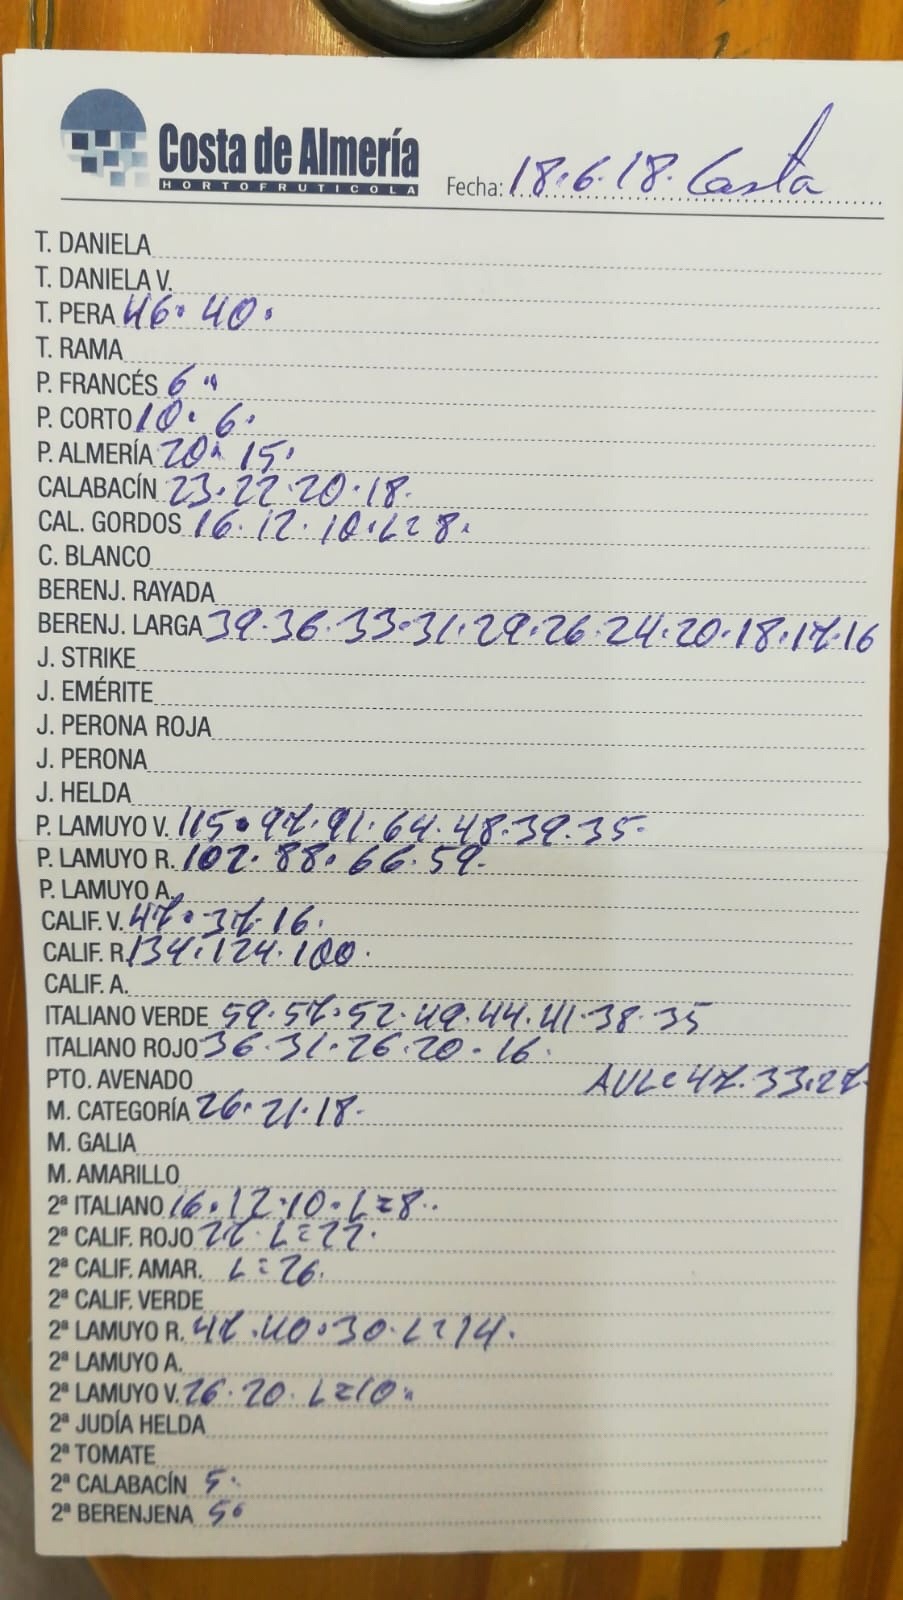 Costa de Almería
HORTOFRUTICOLA
Fecha: 18.6.18. Costa
T. DANIELA
T. DANIELA V.
T. PERA 46. 40.
T. RAMA
P. FRANCÉS 6.
P. CORTO 10. 6.
P. ALMERÍA 20. 15.
CALABACÍN 23.22.20.18.
CAL. GORDOS 16.12.10.L=8.
C. BLANCO
BERENJ. RAYADA
BERENJ. LARGA 39.36.33.31.29.26.24.20.18.17.16
J. STRIKE
J. EMÉRITE
J. PERONA ROJA
J. PERONA
J. HELDA
P. LAMUYO V. 115.97.91.64.48.39.35.
P. LAMUYO R. 102.88.66.59.
P. LAMUYO A.
CALIF. V. 47.37.16.
CALIF. R. 134.124.100.
CALIF. A.
ITALIANO VERDE 59.57.52.49.44.41.38.35
ITALIANO ROJO 36.31.26.20.16.
PTO. AVENADO AVL=47.33.27.
M. CATEGORÍA 26.21.18.
M. GALIA
M. AMARILLO
2ª ITALIANO 16.12.10.L=8..
2ª CALIF. ROJO 27.L=22.
2ª CALIF. AMAR. L=26.
2ª CALIF. VERDE
2ª LAMUYO R. 47.40.30.L=14.
2ª LAMUYO A.
2ª LAMUYO V. 26.20.L=10.
2ª JUDÍA HELDA
2ª TOMATE
2ª CALABACÍN 5.
2ª BERENJENA 5.